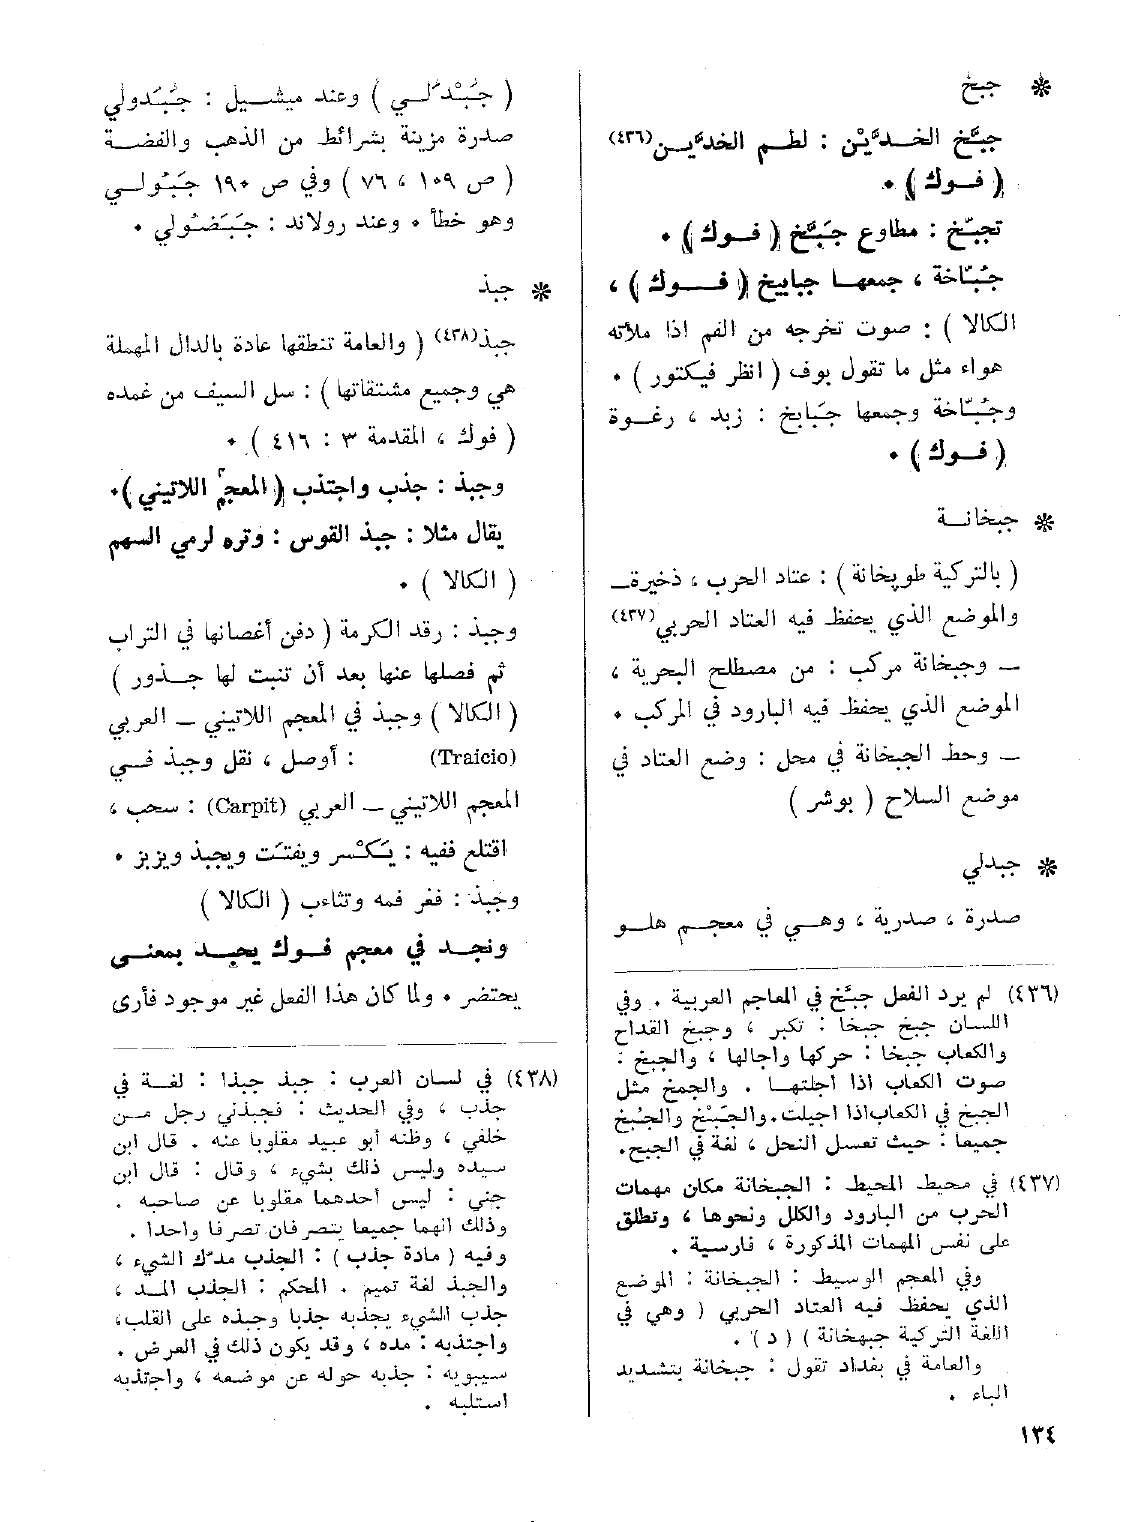 * جبخ
جبَّخ الخــدَّيْن : لطــم الخدَّيــن(٤٣٦)
( فــوك ) ٠
تجبّخ : مطاوع جَبَّخ ( فــوك ) ٠
جُبّاخة ، جمعهــا جبابيخ ( فــــوك ) ،
الكالا ) : صوت تخرجه من الفم اذا ملأته
هواء مثل ما تقول بوف ( انظر فيكتور ) ٠
وجُبّاخة وجمعها جَبابخ : زبد ، رغــوة
( فــوك ) ٠
* جبخانــة
( بالتركية طوبخانة ) : عتاد الحرب ، ذخيرة ــ
والموضع الذي يحفظ فيه العتاد الحربي(٤٣٧)
ــ وجبخانة مركب : من مصطلح البحرية ،
الموضع الذي يحفظ فيه البارود في المركب ٠
ــ وحط الجبخانة في محل : وضع العتاد في
موضع السلاح ( بوشر )
* جبدلي
صدرة ، صدرية ، وهــي في معجــم هلــو
(٤٣٦) لم يرد الفعل جبَّخ في المعاجم العربية . وفي
اللسان جبخ جبخا : تكبر ، وجبخ القداح
والكعاب جبخا : حركها واجالها ، والجبخ :
صوت الكعاب اذا اجلتهــا . والجمخ مثل
الجبخ في الكعاب اذا اجيلت. والجَبْخ والجُبْخ
جميعا : حيث تعسل النحل ، لغة في الجبح.
(٤٣٧) في محيط المحيط : الجبخانة مكان مهمات
الحرب من البارود والكلل ونحوها ، وتطلق
على نفس المهمات المذكورة ، فارسية .
وفي المعجم الوسيط : الجبخانة : الموضع
الذي يحفظ فيه العتاد الحربي ( وهي في
اللغة التركية جبهخانة ) ( د ) .
والعامة في بغداد تقول : جبخانة بتشديد
الباء .
( جَبْدُلــي ) وعند ميشــيل : جَبَدولي
صدرة مزينة بشرائط من الذهب والفضــة
( ص ١٠٩ ، ٧٦ ) وفي ص ١٩٠ جَبَولــي
وهو خطأ ٠ وعند رولاند : جَبَضولي ٠
* جبذ
جبذ(٤٣٨) ( والعامة تنطقها عادة بالدال المهملة
هي وجميع مشتقاتها ) : سل السيف من غمده
( فوك ، المقدمة ٣ : ٤١٦ ) ٠
وجبذ : جذب واجتذب ( المعجم اللاتيني )٠
يقال مثلا : جبذ القوس : وتره لرمي السهم
( الكالا ) ٠
وجبذ : رقد الكرمة ( دفن أغصانها في التراب
ثم فصلها عنها بعد أن تنبت لها جــذور )
( الكالا ) وجبذ في المعجم اللاتيني ــ العربي
(Traicio) : أوصل ، نقل وجبذ فــي
المعجم اللاتيني ــ العربي (Carpit) : سحب ،
اقتلع ففيه : يَكْسر ويفتت ويجبذ ويزبز ٠
وجبذ : فغر فمه وتثاءب ( الكالا )
ونجــد في معجم فــوك يجبــد بمعنــى
يحتضر ٠ ولما كان هذا الفعل غير موجود فأرى
(٤٣٨) في لسان العرب : جبذ جبذا : لغــة في
جذب ، وفي الحديث : فجبذني رجل مــن
خلفي ، وظنه أبو عبيد مقلوبا عنه . قال ابن
سيده وليس ذلك بشيء ، وقال : قال ابن
جني : ليس أحدهما مقلوبا عن صاحبه .
وذلك انهما جميعا يتصرفان تصرفا واحدا .
وفيه ( مادة جذب ) : الجذب مدّك الشيء ،
والجبذ لغة تميم . المحكم : الجذب المــد ،
جذب الشيء يجذبه جذبا وجبذه على القلب،
واجتذبه : مده ، وقد يكون ذلك في العرض .
سيبويه : جذبه حوله عن موضعه ، واجتذبه
استلبه .
١٣٤